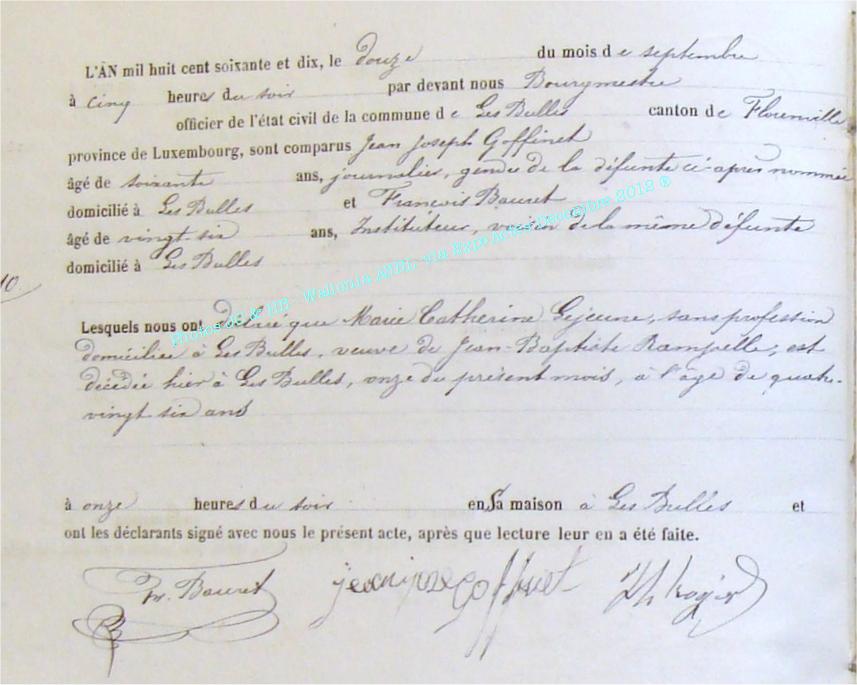 L'AN mil huit cent soixante et dix, le douze du mois de septembre
à cinq heures du soir par devant nous Bourgmestre
officier de l'état civil de la commune de Les Bulles canton de Florenville
province de Luxembourg, sont comparus Jean Joseph Goffinet
âgé de soixante ans, journalier, gendre de la défunte ci-après nommée
domicilié à Les Bulles et François Bauret
âgé de vingt-six ans, Instituteur, voisin de la même défunte
domicilié à Les Bulles
10.
Photos JC & HB - Wallonia ASBL via Expo Actes Décembre 2012 ®
Lesquels nous ont déclaré que Marie Catherine Lejeune, sans profession
domiciliée à Les Bulles, veuve de Jean-Baptiste Rampelle, est
décédée hier à Les Bulles, onze du présent mois, à l'âge de quatre-
vingt six ans
à onze heures du soir en Sa maison à Les Bulles et
ont les déclarants signé avec nous le présent acte, après que lecture leur en a été faite.
Fr. Bauret jean jose goffinet